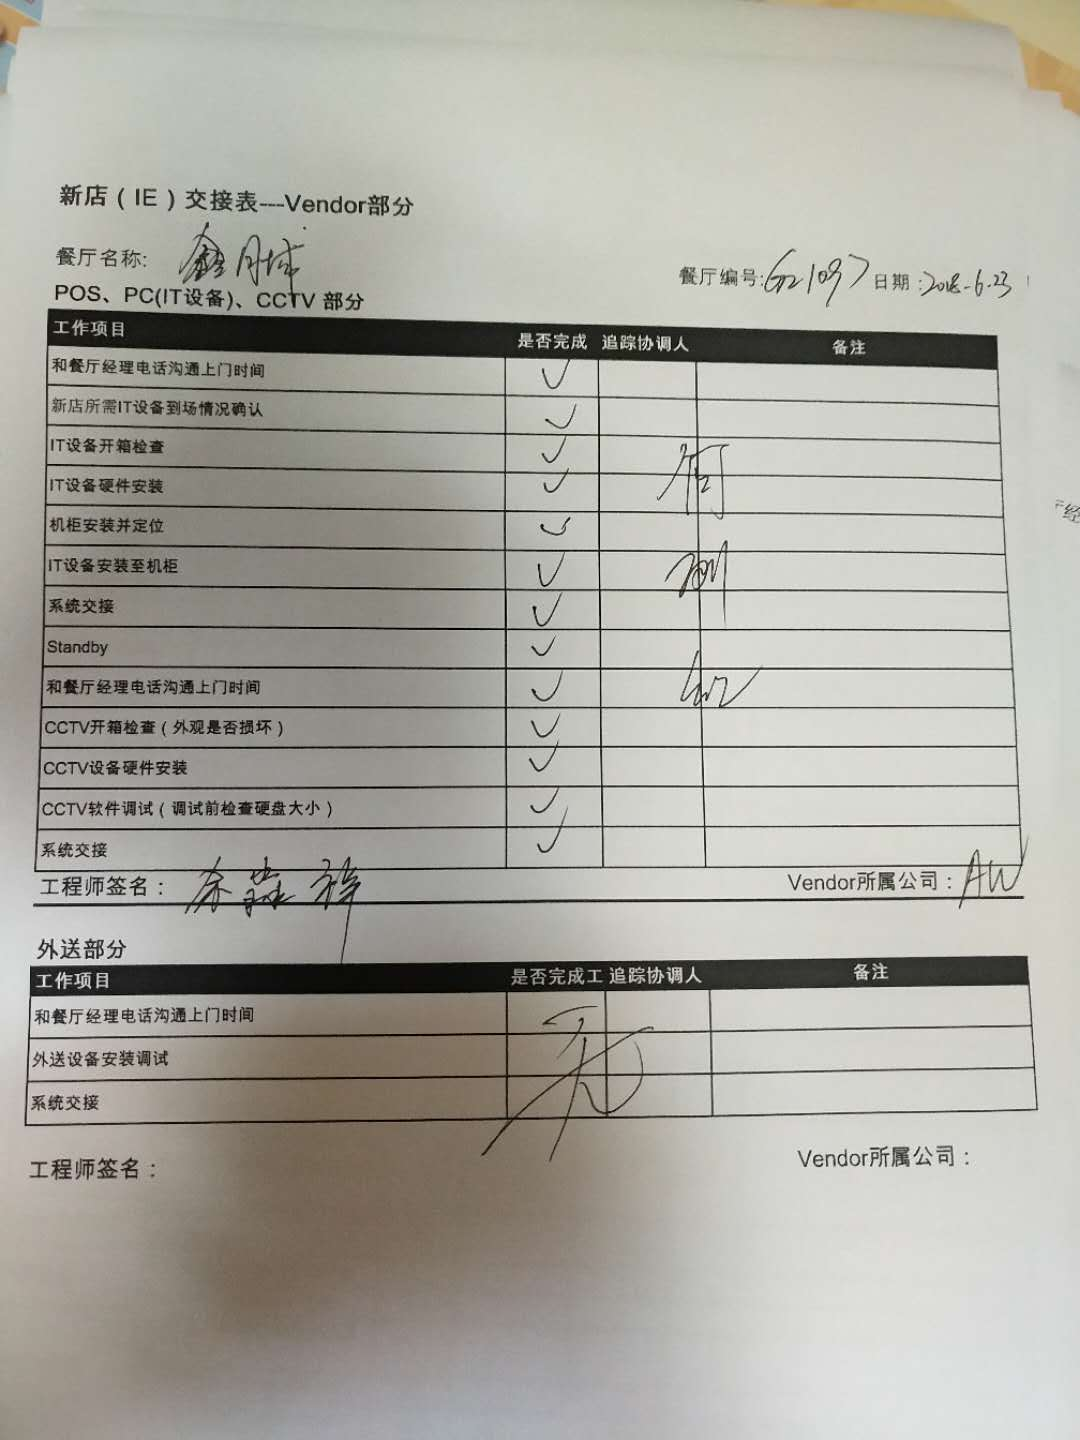 新店（IE）交接表---Vendor部分
餐厅名称: 鑫月城
餐厅编号: GZ1097 日期: 2018-6-23
POS、PC(IT设备)、CCTV 部分
工作项目 是否完成 追踪协调人 备注
和餐厅经理电话沟通上门时间 ✓
新店所需IT设备到场情况确认 ✓
IT设备开箱检查 ✓
IT设备硬件安装 ✓ 何
机柜安装并定位 ✓
IT设备安装至机柜 ✓
系统交接 ✓
Standby ✓
和餐厅经理电话沟通上门时间 ✓
CCTV开箱检查（外观是否损坏） ✓
CCTV设备硬件安装 ✓
CCTV软件调试（调试前检查硬盘大小） ✓
系统交接 ✓
工程师签名： Vendor所属公司：AW
外送部分
工作项目 是否完成工 追踪协调人 备注
和餐厅经理电话沟通上门时间
外送设备安装调试 无
系统交接
工程师签名： Vendor所属公司：